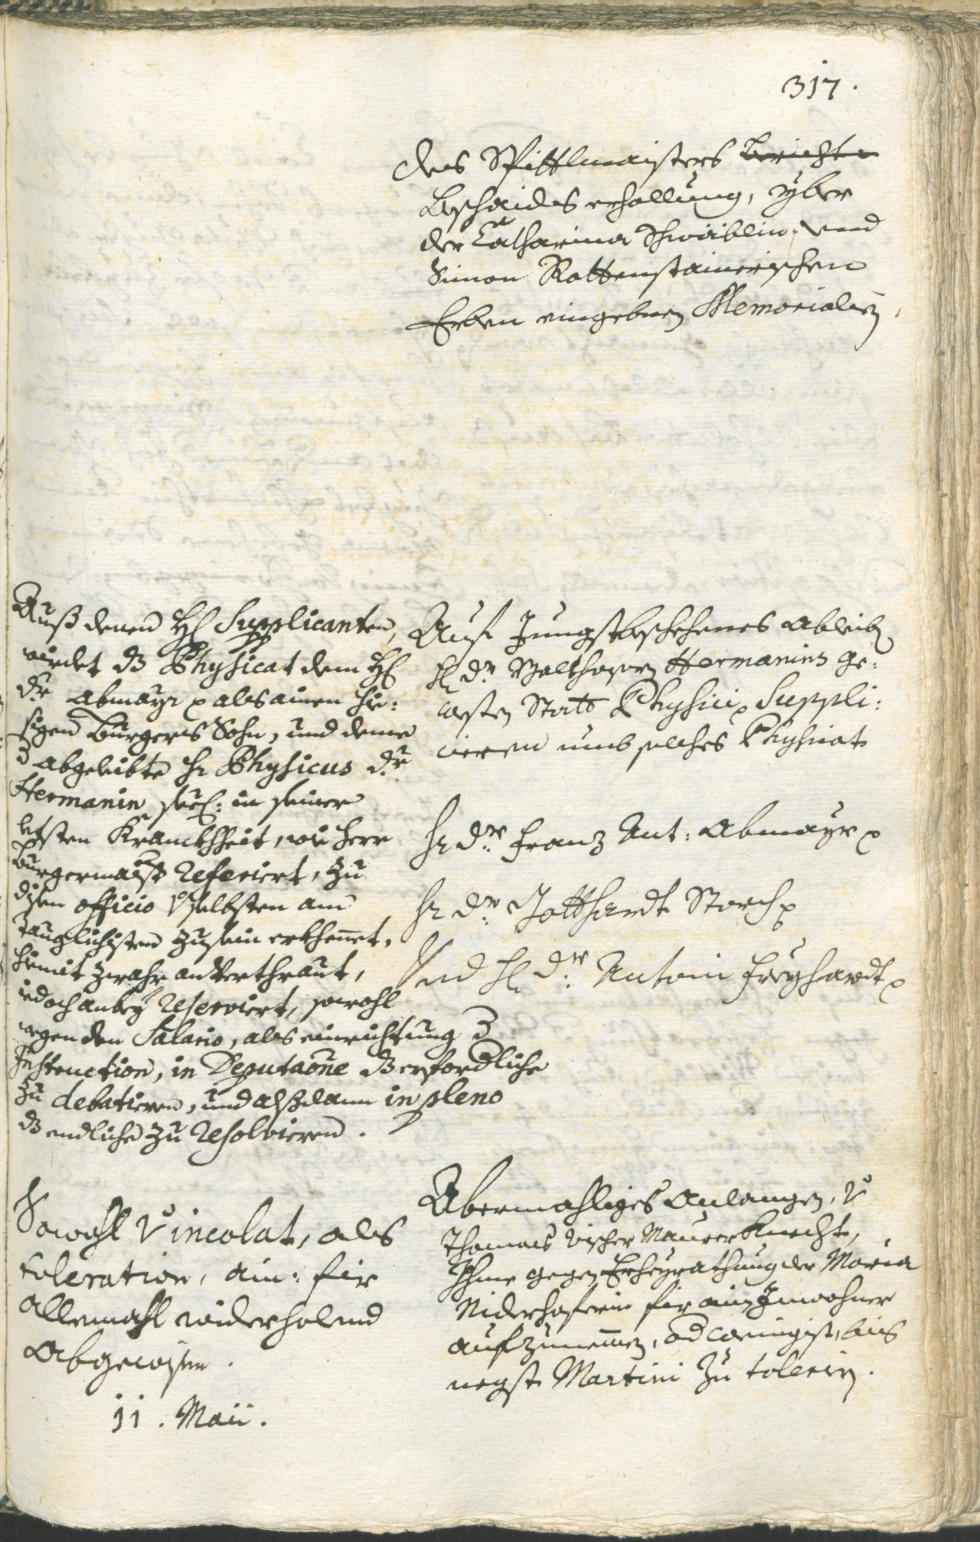 317.
des Spittlmaisters bericht
Bschaides erhollung, yber
der Catharina Schwäblin, und
Simon Rottenstainerischen
Erben eingebnen Memorialien,
Auß denen HH Supplicanten,
wirdet dz Physicat dem H
Dr Abmayr als ainen hie:
sigen Burgers Sohn, und deme
abgeleibte Hr Physicus Dr
Hermanin seel: in seiner
letsten Kranckhheit, wie Herr
Burgermaister Referiert, zu
disen officio selbsten am
tauglichisten zusein erkhennet,
hiemit zwahr anverthraut,
iedoch anbey Reserviert, sowohl
wegen den Salario, als einrichtung der
Instruction, in Deputaone dz erfordliche
zu debatieren, und alßdann in pleno
dz endliche zu Resolvieren.
Auf Jungstbeschehenes ableib
H Dr Balthasarn Hermanins ge:
westen Statt Physici Suppli:
cieren umb solches Physicat
Hr Dr Franz Ant: Abmayr
Hr Dr Gotthardt Storch
Und H Dr Antoni Freyhardt
Sowohl incolat, als
toleration, ain: für
allemahl widerholend
abgewisen.
11. Maii.
Abermahliges Anlangen,
Thomas Vischer Maurer Knechts,
Ihme gegen Erheyrathung der Maria
Niderhoferin für ain Inwohner
aufzunemmen, od wenigist, bis
negst Martini zu tolerirn.